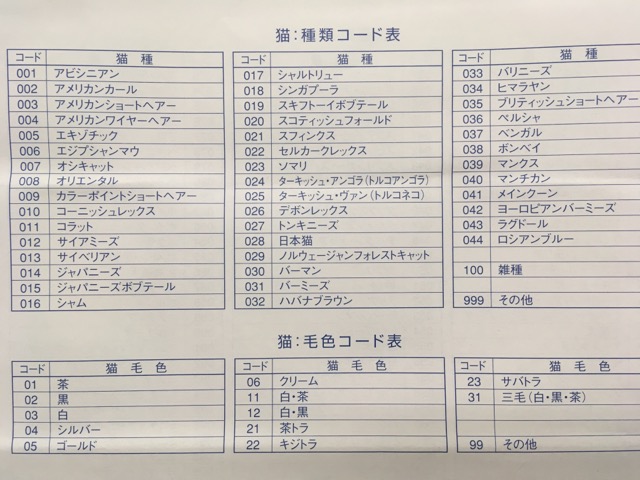 猫：種類コード表
コード 猫種
001 アビシニアン
002 アメリカンカール
003 アメリカンショートヘアー
004 アメリカンワイヤーヘアー
005 エキゾチック
006 エジプシャンマウ
007 オシキャット
008 オリエンタル
009 カラーポイントショートヘアー
010 コーニッシュレックス
011 コラット
012 サイアミーズ
013 サイベリアン
014 ジャパニーズ
015 ジャパニーズボブテール
016 シャム
コード 猫種
017 シャルトリュー
018 シンガプーラ
019 スキフトーイボブテール
020 スコティッシュフォールド
021 スフィンクス
022 セルカークレックス
023 ソマリ
024 ターキッシュ・アンゴラ（トルコアンゴラ）
025 ターキッシュ・ヴァン（トルコネコ）
026 デボンレックス
027 トンキニーズ
028 日本猫
029 ノルウェージャンフォレストキャット
030 バーマン
031 バーミーズ
032 ハバナブラウン
コード 猫種
033 バリニーズ
034 ヒマラヤン
035 ブリティッシュショートヘアー
036 ペルシャ
037 ベンガル
038 ボンベイ
039 マンクス
040 マンチカン
041 メインクーン
042 ヨーロピアンバーミーズ
043 ラグドール
044 ロシアンブルー
100 雑種
999 その他
猫：毛色コード表
コード 猫毛色
01 茶
02 黒
03 白
04 シルバー
05 ゴールド
コード 猫毛色
06 クリーム
11 白・茶
12 白・黒
21 茶トラ
22 キジトラ
コード 猫毛色
23 サバトラ
31 三毛（白・黒・茶）
99 その他